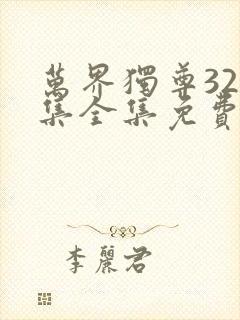 萬界獨尊32
集全集免費
李麗君